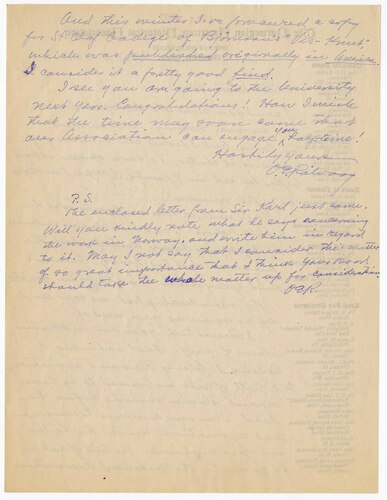 And this winter I've procured a copy
for St. Olaf College of Björnson's "Vis-Knut,"
which was published originally in America.
I consider it a pretty good find.
I see you are going to the University
next year. Congratulations! How I wish
that the time may soon come that
our Association can engage you
Hastily yours
P.S.
The enclosed letter from Sir Karl just came.
Will you kindly note what he says concerning
the work in Norway, and write him in regard
to it. May I not say that I consider the matter
of so great importance that I think your Board
should take the whole matter up for consideration.
OER.